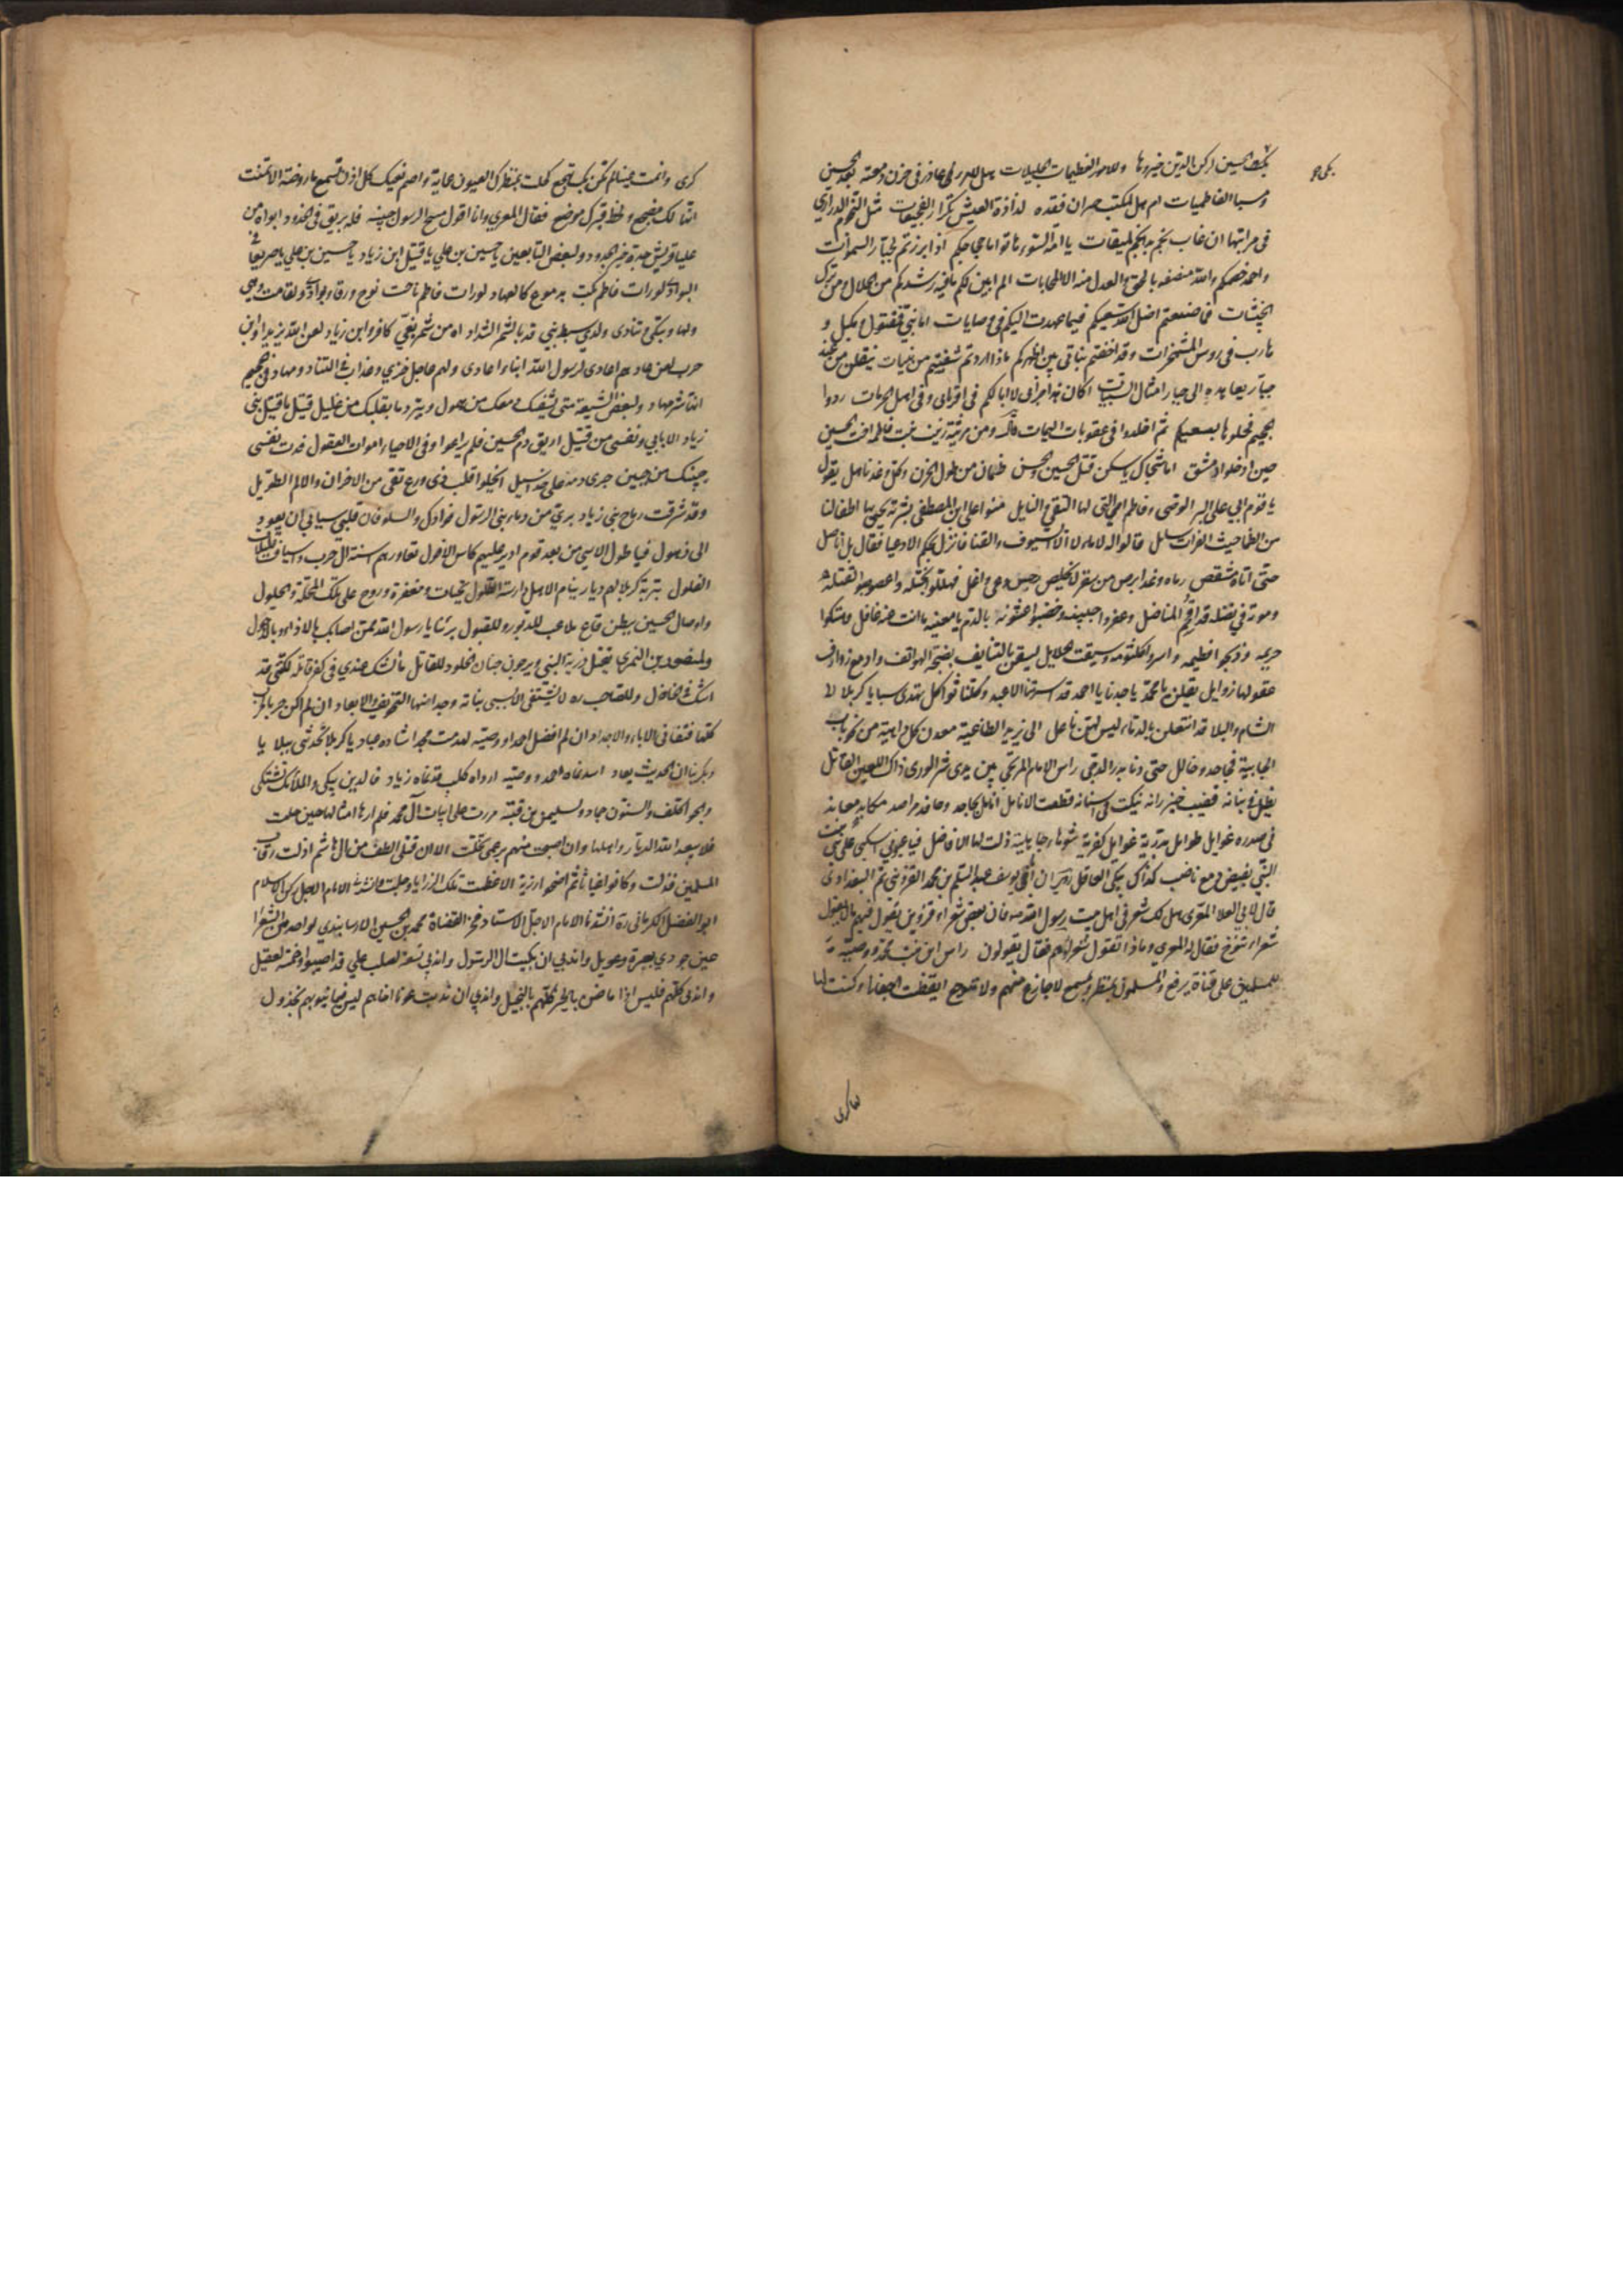 بكت حسين ركن الدين خيروها وللامور العظيمات الجليلات هل للدر لى عاذر فى حزن دمعته بعد حسين
وسبا الفاطميات ام هل لمكتئب حران فقده لذاذة العيش تكرار الفجيعات مثل النجوم الدرارى
فى مراتبها ان غاب نجم بدا نجم لميقات يا امة السوء هاتوا ما حججكم اذا برزتم لجبار السموات
واحمد خصمكم والله منصفه بالحق والعدل منه لا المحابات الم ابين لكم ما فيه رشدكم من الحلال ومن ترك
الخبيثات فما صنعتم اضل الله سعيكم فيما عهدت اليكم فى وصايات اما بنى فمقتول ومكبل و
هارب فى روس المشمخرات وقد اخفتم بناتى بين اظهركم ماذا اردتم شقيتم من بنيات ينقلن من عند
جبار يعاهده الى جبار امثال السبيات اكان هذا جزائى لا ابا لكم فى اقربائى وفى اهل الحرمات ردوا
الجحيم فحلوها بسعيكم ثم اخلدوا فى عقوبات اليمات ومن مرثية زينب بنت فاطمة اخت الحسين
حين ادخلوا دمشق اما شجاك يا سكن قتل الحسين والحسن ظمان من طول الحزن وكل وغد ناهل يقول
يا قوم ابى على البر الوصى وفاطم امى التى لها التقى والنايل منوا على ابن المصطفى بشربة يحيى بها اطفالنا
من الظما حيث الفرات سايل قالوا له لا ماء لا الا السيوف والقنا فانزل بحكم الادعيا فقال بل اناضل
حتى اتاه مشقص رماه وغد ابرص من سقر لا يخلص رجس دعى واغل فهللوا بختله واعصوصبوا لقتله
وموته فى نضله قد اقحم المناضل وعفروا جبينه وخضبوا عثنونه بالدم يا معينه ما انت عنه غافل وهتكوا
حريمه وذبحوا فطيمه واسروا كلثومه وسيقت الحلايل يسقن بالتنايف بضجة الهواتف وادمع ذوارف
عقولها زوايل يقلن يا محمد يا جدنا يا احمد قد اسرتنا الاعبد وكلنا ثواكل تهدى سبايا كربلا الى
الشام والبلا قد انتعلن بالدماء ليس لهن ناعل الى يزيد الطاغية معدن كل داهية من نحو باب
الجابية فجاحد وخاتل حتى دنا بدر الدجى راس الامام المرتجى بين يدى شر الورى ذاك اللعين القاتل
يظل فى بنانه قضيب خيزرانه ينكت فى اسنانه قطعت الانامل انامل بجاحد وحاقد مراصد مكابد معاند
فى صدره غوايل طوايل بدرية غوايل كفرية شوهاء جاهلية ذلت لها الافاضل فيا عيونى اسكبى على بنى بنت
النبى بفيض دمع ناضب كذاك يبكى العاقل ان ابى يوسف عبد السلم بن محمد القزوينى ثم البغدادى
قال لابى العلا المعرى هل لك شعر فى اهل بيت رسول الله فان بعض شعراء قزوين يقول فيهم ما لا يقول
شعراء تنوخ فقال له المعرى وماذا تقول شعراؤهم فقال يقولون راس ابن بنت محمد ووصيه
للمسلمين على قناة يرفع والمسلمون بمنظر وبمسمع لا جازع منهم ولا متوجع ايقظت اجفانا وكنت لها
كرى
كرى وانمت عينا لم تكن بك تهجع كحلت بمنظرك العيون عماية واصم نعيك كل اذن تسمع ما روضة الا تمنت
انها لك مضجع ولخط قبرك موضع فقال المعرى وانا اقول مسح الرسول جبينه فله بريق فى الخدود ابواه من
عليا قريش جده خير الجدود ولبعض التابعين يا حسين بن على يا قتيل ابن زياد يا حسين بن على يا صريعا فى
البوادى لو رات فاطم بكت بدموع كالعهاد لو رات فاطم ناحت نوح ورقاء بوادى ولقامت وهى
ولها وتبكى وتنادى ولدى سبط نبى قد بالشم الشداد اه من شمر بغى كافر وابن زياد لعن الله يزيدا وابن
حرب لعن عاد هم اعادى لرسول الله ابناء اعادى ولهم عاجل خزى وعذاب فى التناد ومهاد فى جحيم
انها شر مهاد ولبعض الشيعة متى يشفيك دمعك من همول ويبرد ما بقلبك من غليل قتيل ما قتيل بنى
زياد الا بابى ونفسى من قتيل اريق دم الحسين فلم يراعوا وفى الاحياء اموات العقول فدت نفسى
جبينك من جبين جرى دمه على خد اسيل ايخلوا قلب ذى ورع تقى من الاحزان والالم الطويل
وقد شرقت رماح بنى زياد برى من دماء بنى الرسول فوادك والسلو فان قلبى سيابى ان يعود
الى ذهول فيا طول الاسى من بعد قوم ادير عليهم كاس الافول تعاورهم اسنة ال حرب واسياف قليلات
الفلول بتربة كربلا لهم ديار ينام الاهل دارسة الطلول تحيات ومغفرة وروح على تلك المحلة والحلول
واوصال الحسين ببطن قاع ملاعب للدبور وللقبول برئنا يا رسول الله ممن اصابك بالاذاء وبالذحول
ولمنصور بن النمرى تقتل ذرية النبى ويرجون جنان الخلود للقاتل ما الشك عندى فى كفر قاتله لكننى قد
اشك فى الخاذل وللصاحب ره لا يشتفى الا بسبى بناته وجدانها التخويف والابعاد ان لم اكن حربا لحرب
كلها فنفانى الاباء والاجداد ان لم افضل احمدا ووصيه لهدمت مجدا شاده عباد يا كربلا تحدثى ببلا يا
وبكربنا ان الحديث يعاد اسد نماه احمد ووصيه ارداه كلب قد نماه زياد فالدين يبكى والملائك تشتكى
والجو اكلف والسنون جماد ولسليمن بن قتبة مررت على ابيات آل محمد فلم ارها امثالها حين حلت
فلا يبعد الله الديار واهلها وان اصبحت منهم برغمى تخلت الا ان قتلى الطف من ال هاشم اذلت رقاب
المسلمين فذلت وكانوا غياثا ثم اضحوا رزية الا عظمت تلك الرزايا وجلت وانشدنى الامام الاجل ركن الاسلام
ابو الفضل الكرمانى ره انشدنا الامام الاجل الاستاد فخر القضاة محمد بن الحسين الارسابندى لواحد من الشعرا
عين جودى بعبرة وعويل واندبى ان بكيت ال الرسول واندبى تسعة لصلب على قد اصيبوا وخمسة لعقيل
واندبى كلهم فليس اذا ما ضن بالخير كلهم بالبخيل واندبى ان ندبت عونا اخاهم ليس فيما ينوبهم بخذول